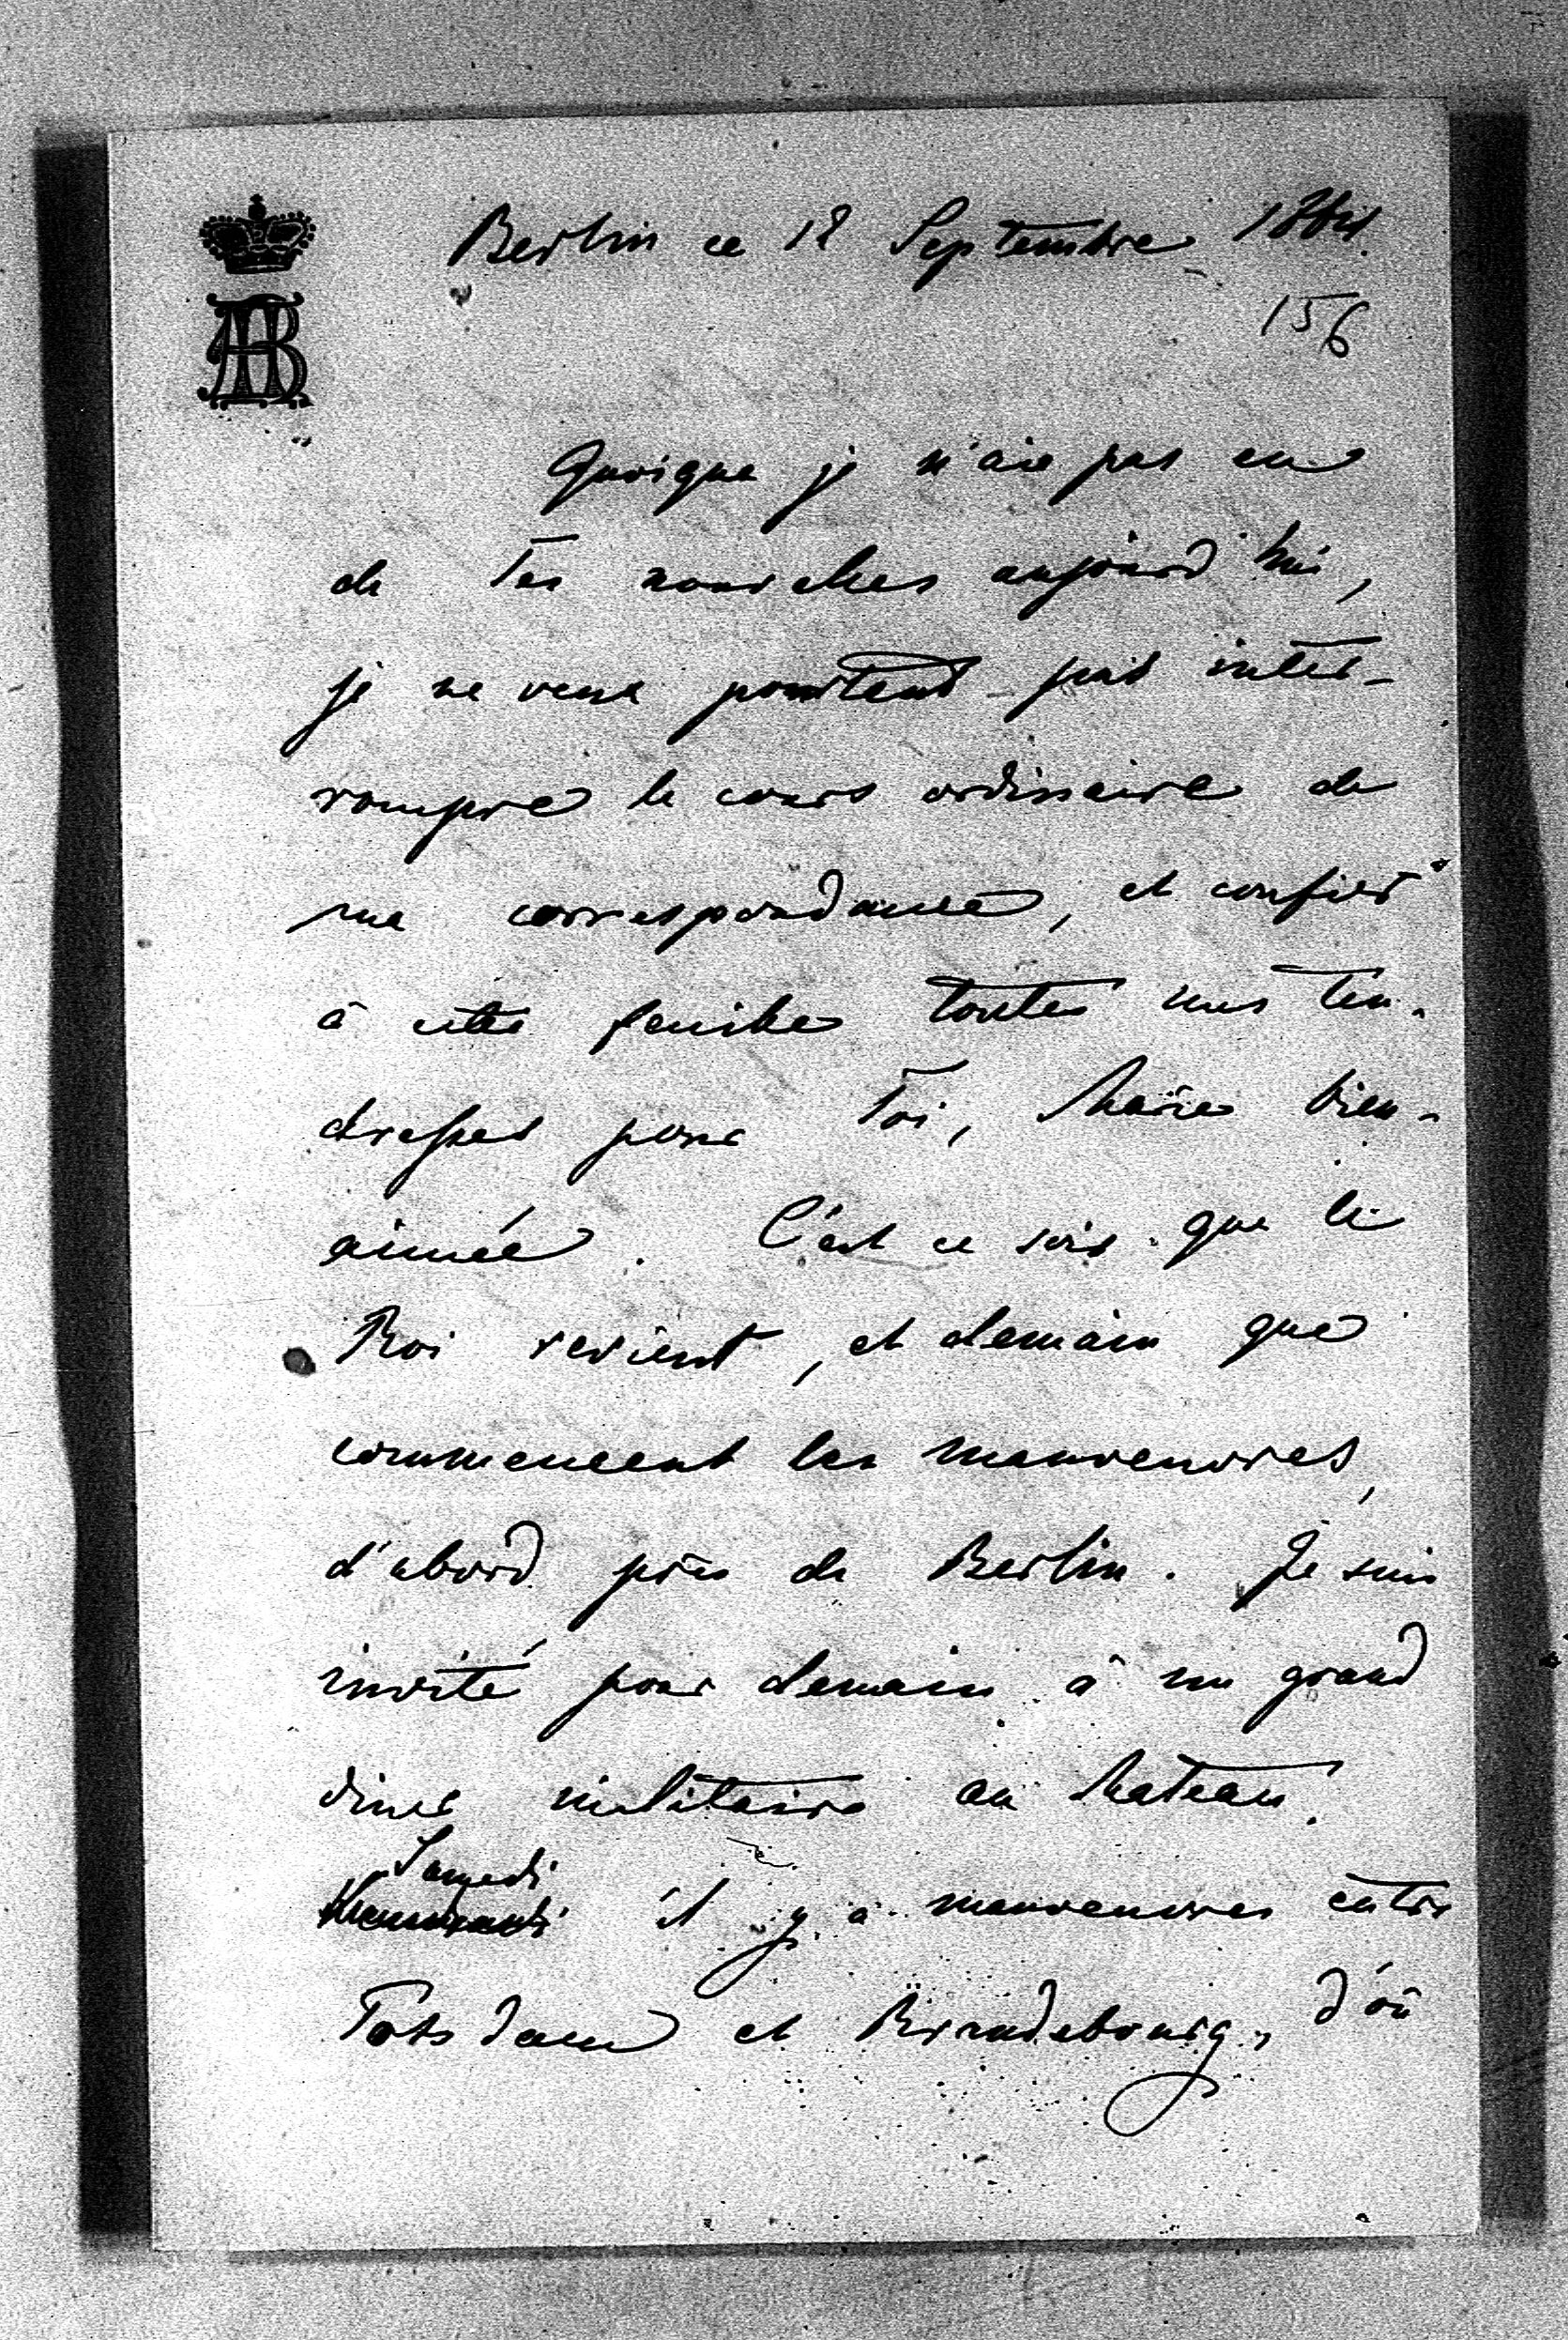 Berlin ce 18 Septembre 1864.
156
Quoique je n'aie pas eu
de Tes nouvelles aujourd'hui,
je ne veux pourtant pas inter-
rompre le cours ordinaire de
ma correspondance, et confier
à cette feuille toutes mes ten-
dresses pour Toi, Marie bien-
aimée. C'est ce soir que le
Roi revient, et demain que
commencent les manoeuvres,
d'abord près de Berlin. Je suis
invité pour demain à un grand
diner militaire au chateau.
Samedi
il y a manoeuvres entre
Potsdam et Brandebourg, d'où